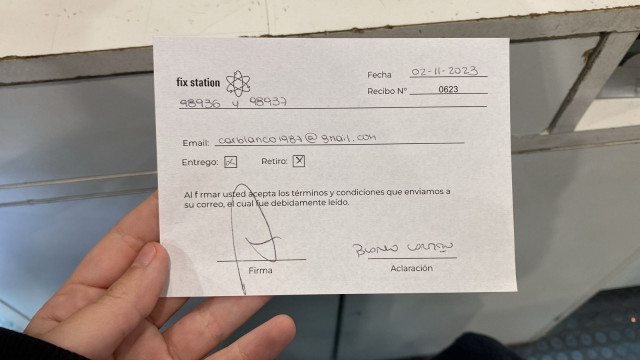 fix station
Fecha 02-11-2023
Recibo N° 0623
98936 y 98937
Email: carblanco1987@gmail.com
Entrego: x Retiro: x
Al f rmar usted acepta los términos y condiciones que enviamos a
su correo, el cual fue debidamente leído.
Blanco
Firma Aclaración